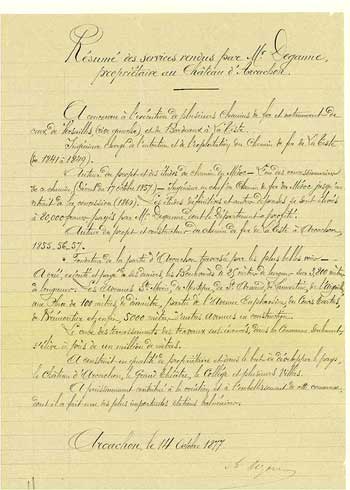 Résumé des services rendus par Mr Deganne,
propriétaire au Château d'Arcachon.
A concouru à l'exécution de plusieurs Chemins de fer et notamment de
ceux de Versailles (rive gauche) et de Bordeaux à La Teste.
Ingénieur chargé de l'entretien et de l'exploitation du Chemin de fer de La Teste
(de 1841 à 1849).
Auteur du projet et des études du chemin du Médoc. L'un des concessionnaires
de ce chemin (Décret du 17 octobre 1857) - Ingénieur en chef du Chemin de fer du Médoc jusqu'au
retrait de la concession (1860).
à 80,000 francs payés par Mr Deganne, dont le Département a profité.
Auteur du projet et constructeur du chemin de fer de La Teste à Arcachon,
1855. 56. 57.
Fondateur de la partie d'Arcachon traversée par les plus belles voies -
A créé, exécuté et payé de ses deniers, les Boulevards de 25 mètres de largeur sur 2,800 mètres
de longueur. Les Avenues Ste Marie,
une Place de 100 mètres de diamètre, partie de l'Avenue Euphrosine, des Cours
et enfin, 5000 mètres d'autres avenues en construction.
Le cube des terrassements des travaux susénoncés, dans la Commune seulement,
s'élève à près de un million de mètres.
A construit en qualité de propriétaire et dans le but de développer le pays,
le Château d'Arcachon, le Grand Théâtre, le Collège et plusieurs Villas.
A puissamment contribué à la création et à l'embellissement de cette commune,
dont il a fait une des plus importantes stations balnéaires.
Arcachon, le 14 Octobre 1877.